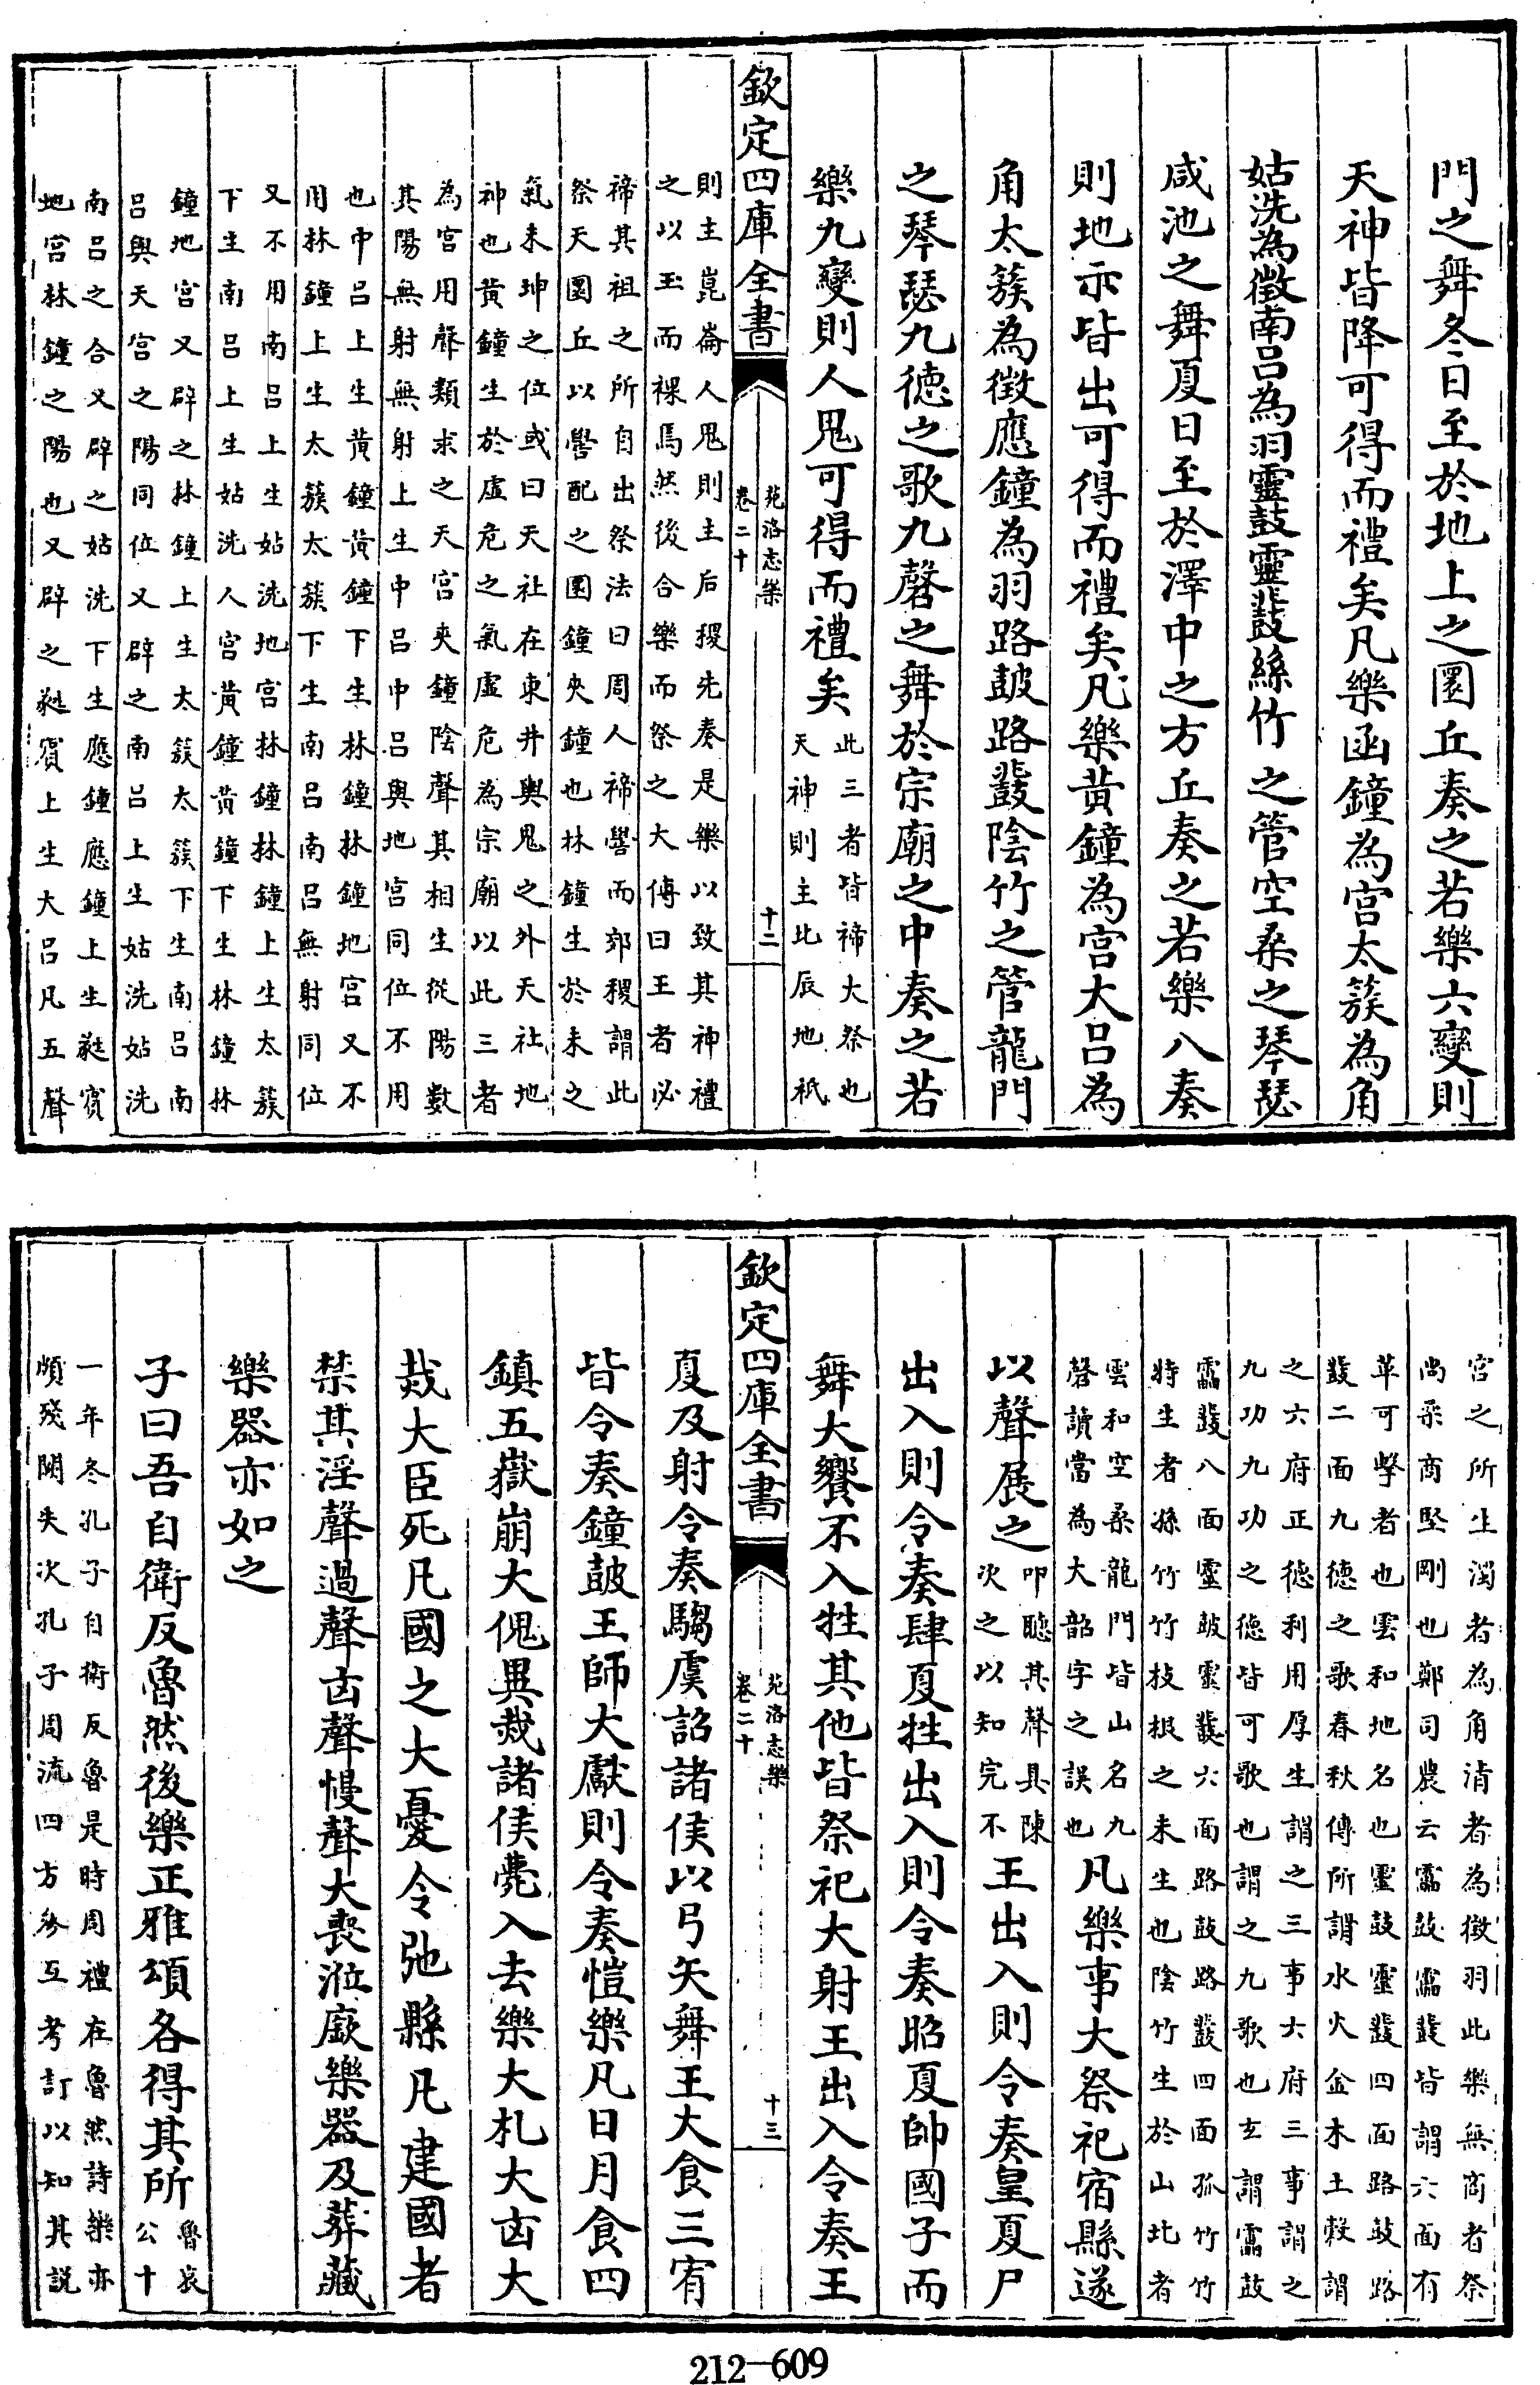 門之舞冬日至於地上之圜丘奏之若樂六變則
天神皆降可得而禮矣凡樂函鐘為宮太簇為角
姑洗為徵南呂為羽靈鼓靈鼗絲竹之管空桑之琴瑟
咸池之舞夏日至於澤中之方丘奏之若樂八奏
則地示皆出可得而禮矣凡樂黃鐘為宮大呂為
角太簇為徵應鐘為羽路鼓路鼗陰竹之管龍門
之琴瑟九德之歌九磬之舞於宗廟之中奏之若
樂九變則人鬼可得而禮矣
此三者皆禘大祭也
天神則主北辰地祇
欽定四庫全書
苑洛志樂
卷二十
十二
則主崑崙人鬼則主后稷先奏是樂以致其神禮
之以玉而祼焉然後合樂而祭之大傳曰王者必
禘其祖之所自出祭法曰周人禘嚳而郊稷謂此
祭天圜丘以嚳配之圜鐘夾鐘也林鐘生於未之
氣未坤之位或曰天社在東井輿鬼之外天社地
神也黃鐘生於虛危之氣虛危為宗廟以此三者
為宮用聲類求之天宮夾鐘陰聲其相生從陽數
其陽無射無射上生中呂中呂與地宮同位不用
也中呂上生黃鐘黃鐘下生林鐘林鐘地宮又不
用林鐘上生太簇太簇下生南呂南呂無射同位
又不用南呂上生姑洗地宮林鐘林鐘上生太簇
下生南呂上生姑洗人宮黃鐘黃鐘下生林鐘林
鐘地宮又辟之林鐘上生太簇太簇下生南呂南
呂與天宮之陽同位又辟之南呂上生姑洗姑洗
南呂之合又辟之姑洗下生應鐘應鐘上生蕤賓
地宮林鐘之陽也又辟之蕤賓上生大呂凡五聲
宮之所生濁者為角清者為徵羽此樂無商者祭
尚柔商堅剛也鄭司農云靁鼓靁鼗皆謂六面有
革可擊者也雲和地名也靈鼓靈鼗四面路鼓路
鼗二面九德之歌春秋傳所謂水火金木土穀謂
之六府正德利用厚生謂之三事六府三事謂之
九功九功之德皆可歌也謂之九歌也玄謂靁鼓
靁鼗八面靈鼓靈鼗六面路鼓路鼗四面孤竹竹
特生者孫竹竹枝根之未生也陰竹生於山北者
雲和空桑龍門皆山名九
磬讀當為大韶字之誤也
凡樂事大祭祀宿縣遂
以聲展之
叩聽其聲具陳
次之以知完不
王出入則令奏皇夏尸
出入則令奏肆夏牲出入則令奏昭夏帥國子而
舞大饗不入牲其他皆祭祀大射王出入令奏王
欽定四庫全書
苑洛志樂
卷二十
十三
夏及射令奏騶虞詔諸侯以弓矢舞王大食三宥
皆令奏鐘鼓王師大獻則令奏愷樂凡日月食四
鎮五嶽崩大傀異烖諸侯薨入去樂大札大凶大
烖大臣死凡國之大憂令弛縣凡建國者
禁其淫聲過聲凶聲慢聲大喪涖廞樂器及葬藏
樂器亦如之
子曰吾自衛反魯然後樂正雅頌各得其所
魯哀
公十
一年冬孔子自衛反魯是時周禮在魯然詩樂亦
頗殘闕失次孔子周流四方參互考訂以知其説
212—609